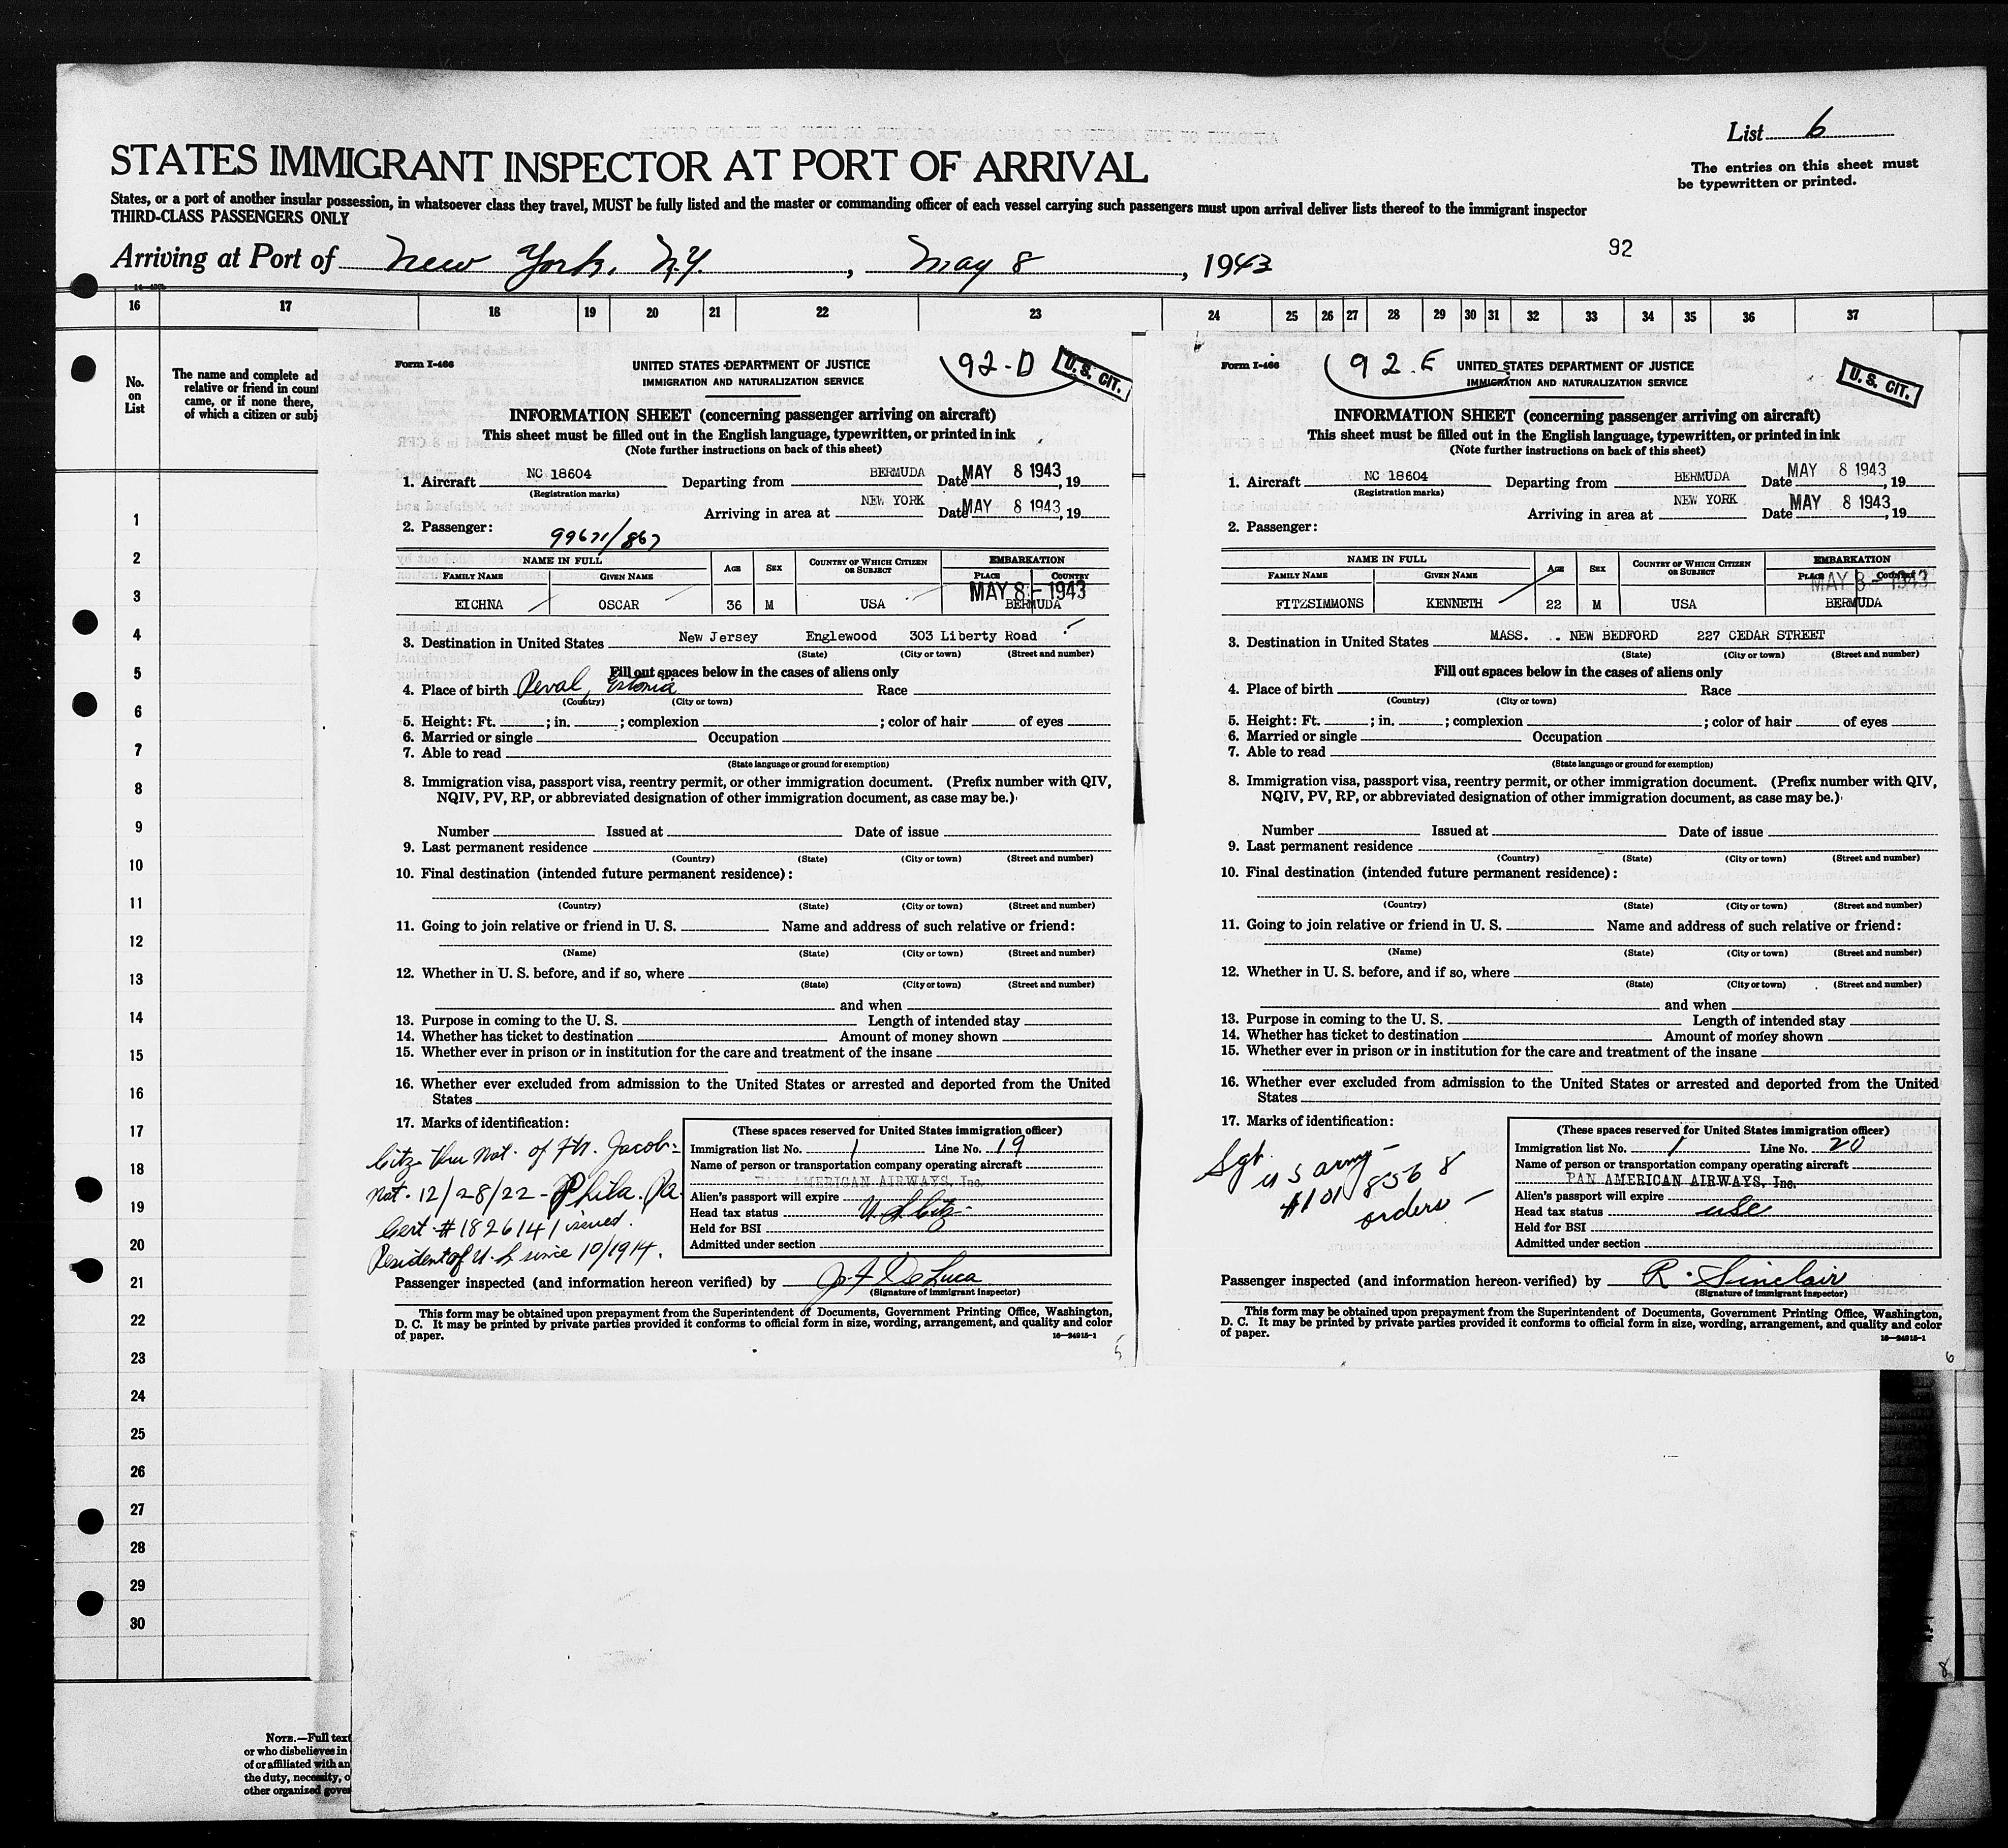 List 6
STATES IMMIGRANT INSPECTOR AT PORT OF ARRIVAL
The entries on this sheet must
be typewritten or printed.
States, or a port of another insular possession, in whatsoever class they travel, MUST be fully listed and the master or commanding officer of each vessel carrying such passengers must upon arrival deliver lists thereof to the immigrant inspector
THIRD-CLASS PASSENGERS ONLY
Arriving at Port of New York, N.Y. , May 8 , 1943
92
16 17 18 19 20 21 22 23 24 25 26 27 28 29 30 31 32 33 34 35 36 37
No.
on
List
The name and complete ad
relative or friend in count
came, or if none there,
of which a citizen or subj
1
2
3
4
5
6
7
8
9
10
11
12
13
14
15
16
17
18
19
20
21
22
23
24
25
26
27
28
29
30
NOTE.—Full text
or who disbelieves in
of or affiliated with an
the duty, necessity, o
other organized gover
Form I-466
UNITED STATES DEPARTMENT OF JUSTICE
IMMIGRATION AND NATURALIZATION SERVICE
92-D
U.S. CIT.
INFORMATION SHEET (concerning passenger arriving on aircraft)
This sheet must be filled out in the English language, typewritten, or printed in ink
(Note further instructions on back of this sheet)
1. Aircraft NC 18604 Departing from BERMUDA Date MAY 8 1943, 19
(Registration marks)
Arriving in area at NEW YORK Date MAY 8 1943, 19
2. Passenger: 99671/867
NAME IN FULL AGE SEX COUNTRY OF WHICH CITIZEN OR SUBJECT EMBARKATION
FAMILY NAME GIVEN NAME PLACE COUNTRY
MAY 8 - 1943
EICHNA OSCAR 36 M USA BERMUDA
3. Destination in United States New Jersey Englewood 303 Liberty Road
(State) (City or town) (Street and number)
Fill out spaces below in the cases of aliens only
4. Place of birth Reval, Estonia Race
(Country) (City or town)
5. Height: Ft. ; in. ; complexion ; color of hair of eyes
6. Married or single Occupation
7. Able to read
(State language or ground for exemption)
8. Immigration visa, passport visa, reentry permit, or other immigration document. (Prefix number with QIV,
NQIV, PV, RP, or abbreviated designation of other immigration document, as case may be.)
Number Issued at Date of issue
9. Last permanent residence
(Country) (State) (City or town) (Street and number)
10. Final destination (intended future permanent residence):
(Country) (State) (City or town) (Street and number)
11. Going to join relative or friend in U. S. Name and address of such relative or friend:
(Name) (State) (City or town) (Street and number)
12. Whether in U. S. before, and if so, where
(State) (City or town) (Street and number)
and when
13. Purpose in coming to the U. S. Length of intended stay
14. Whether has ticket to destination Amount of money shown
15. Whether ever in prison or in institution for the care and treatment of the insane
16. Whether ever excluded from admission to the United States or arrested and deported from the United
States
17. Marks of identification:
Citz. thru Nat. of Ftr. Jacob-
Nat. 12/28/22 - Phila. Pa.
Cert # 1826141 issued.
Resident of U.S. since 10/1914.
(These spaces reserved for United States immigration officer)
Immigration list No. 1 Line No. 19
Name of person or transportation company operating aircraft
PAN AMERICAN AIRWAYS, Inc.
Alien's passport will expire
Head tax status U.S. Citz-
Held for BSI
Admitted under section
Passenger inspected (and information hereon verified) by J. F. DeLuca
(Signature of immigrant inspector)
This form may be obtained upon prepayment from the Superintendent of Documents, Government Printing Office, Washington,
D. C. It may be printed by private parties provided it conforms to official form in size, wording, arrangement, and quality and color
of paper.
16—24915-1
5
Form I-466
92-E
UNITED STATES DEPARTMENT OF JUSTICE
IMMIGRATION AND NATURALIZATION SERVICE
U.S. CIT.
INFORMATION SHEET (concerning passenger arriving on aircraft)
This sheet must be filled out in the English language, typewritten, or printed in ink
(Note further instructions on back of this sheet)
1. Aircraft NC 18604 Departing from BERMUDA Date MAY 8 1943, 19
(Registration marks)
Arriving in area at NEW YORK Date MAY 8 1943, 19
2. Passenger:
NAME IN FULL AGE SEX COUNTRY OF WHICH CITIZEN OR SUBJECT EMBARKATION
FAMILY NAME GIVEN NAME PLACE COUNTRY
MAY 8 - 1943
FITZSIMMONS KENNETH 22 M USA BERMUDA
3. Destination in United States MASS. NEW BEDFORD 227 CEDAR STREET
(State) (City or town) (Street and number)
Fill out spaces below in the cases of aliens only
4. Place of birth Race
(Country) (City or town)
5. Height: Ft. ; in. ; complexion ; color of hair of eyes
6. Married or single Occupation
7. Able to read
(State language or ground for exemption)
8. Immigration visa, passport visa, reentry permit, or other immigration document. (Prefix number with QIV,
NQIV, PV, RP, or abbreviated designation of other immigration document, as case may be.)
Number Issued at Date of issue
9. Last permanent residence
(Country) (State) (City or town) (Street and number)
10. Final destination (intended future permanent residence):
(Country) (State) (City or town) (Street and number)
11. Going to join relative or friend in U. S. Name and address of such relative or friend:
(Name) (State) (City or town) (Street and number)
12. Whether in U. S. before, and if so, where
(State) (City or town) (Street and number)
and when
13. Purpose in coming to the U. S. Length of intended stay
14. Whether has ticket to destination Amount of money shown
15. Whether ever in prison or in institution for the care and treatment of the insane
16. Whether ever excluded from admission to the United States or arrested and deported from the United
States
17. Marks of identification:
Sgt.
U S army -
#101 8568
orders -
(These spaces reserved for United States immigration officer)
Immigration list No. 1 Line No. 20
Name of person or transportation company operating aircraft
PAN AMERICAN AIRWAYS, Inc.
Alien's passport will expire
Head tax status usc
Held for BSI
Admitted under section
Passenger inspected (and information hereon verified) by R. Sinclair
(Signature of immigrant inspector)
This form may be obtained upon prepayment from the Superintendent of Documents, Government Printing Office, Washington,
D. C. It may be printed by private parties provided it conforms to official form in size, wording, arrangement, and quality and color
of paper.
16—24915-1
6
8